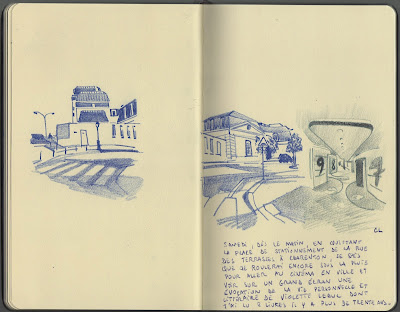 9 8 7
CL
SAMEDI, DÈS LE MATIN, EN QUITTANT
LA PLACE DE STATIONNEMENT DE LA RUE
DES TERRASSES À CHARENTON, JE SAIS
QUE JE ROULERAI ENCORE SOUS LA PLUIE
POUR ALLER AU CINÉMA EN VILLE ET
VOIR SUR UN GRAND ÉCRAN UNE
ÉVOCATION DE LA VIE PERSONNELLE ET
LITTÉRAIRE DE VIOLETTE LEDUC DONT
J'AI LU 3 LIVRES IL Y A PLUS DE TRENTE ANS.